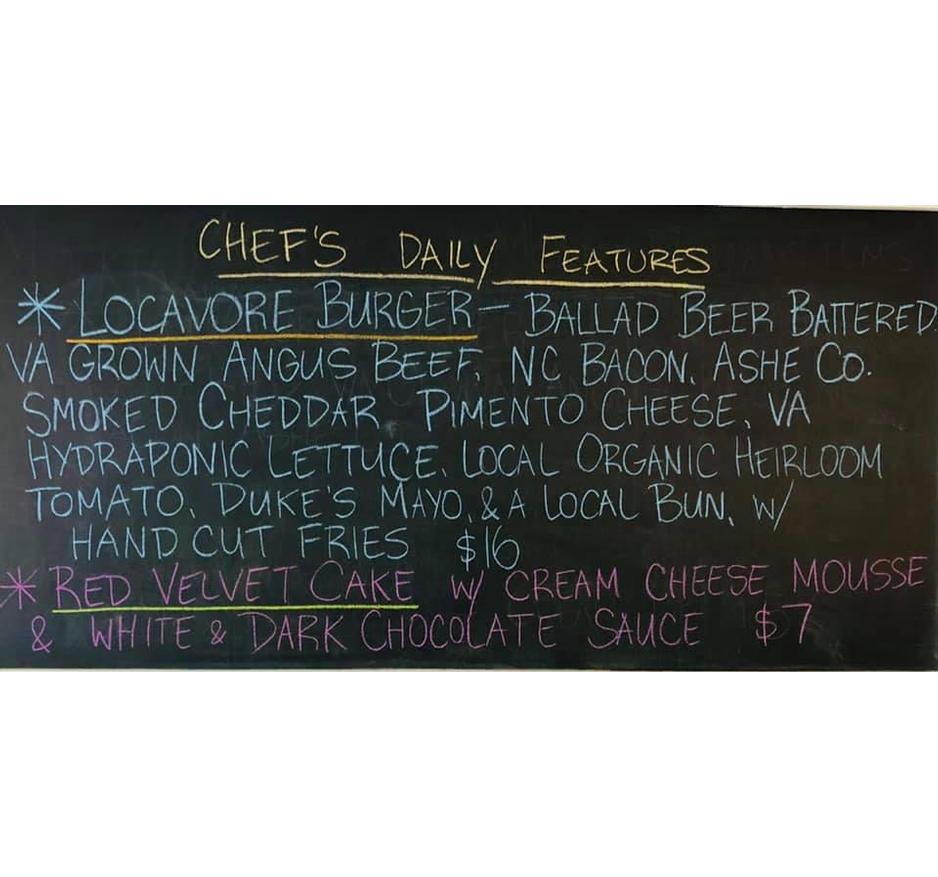 CHEF'S DAILY FEATURES
* LOCAVORE BURGER - BALLAD BEER BATTERED
VA GROWN ANGUS BEEF, NC BACON, ASHE CO.
SMOKED CHEDDAR PIMENTO CHEESE, VA
HYDRAPONIC LETTUCE, LOCAL ORGANIC HEIRLOOM
TOMATO, DUKE'S MAYO, & A LOCAL BUN, W/
HAND CUT FRIES $16
* RED VELVET CAKE W/ CREAM CHEESE MOUSSE
& WHITE & DARK CHOCOLATE SAUCE $7